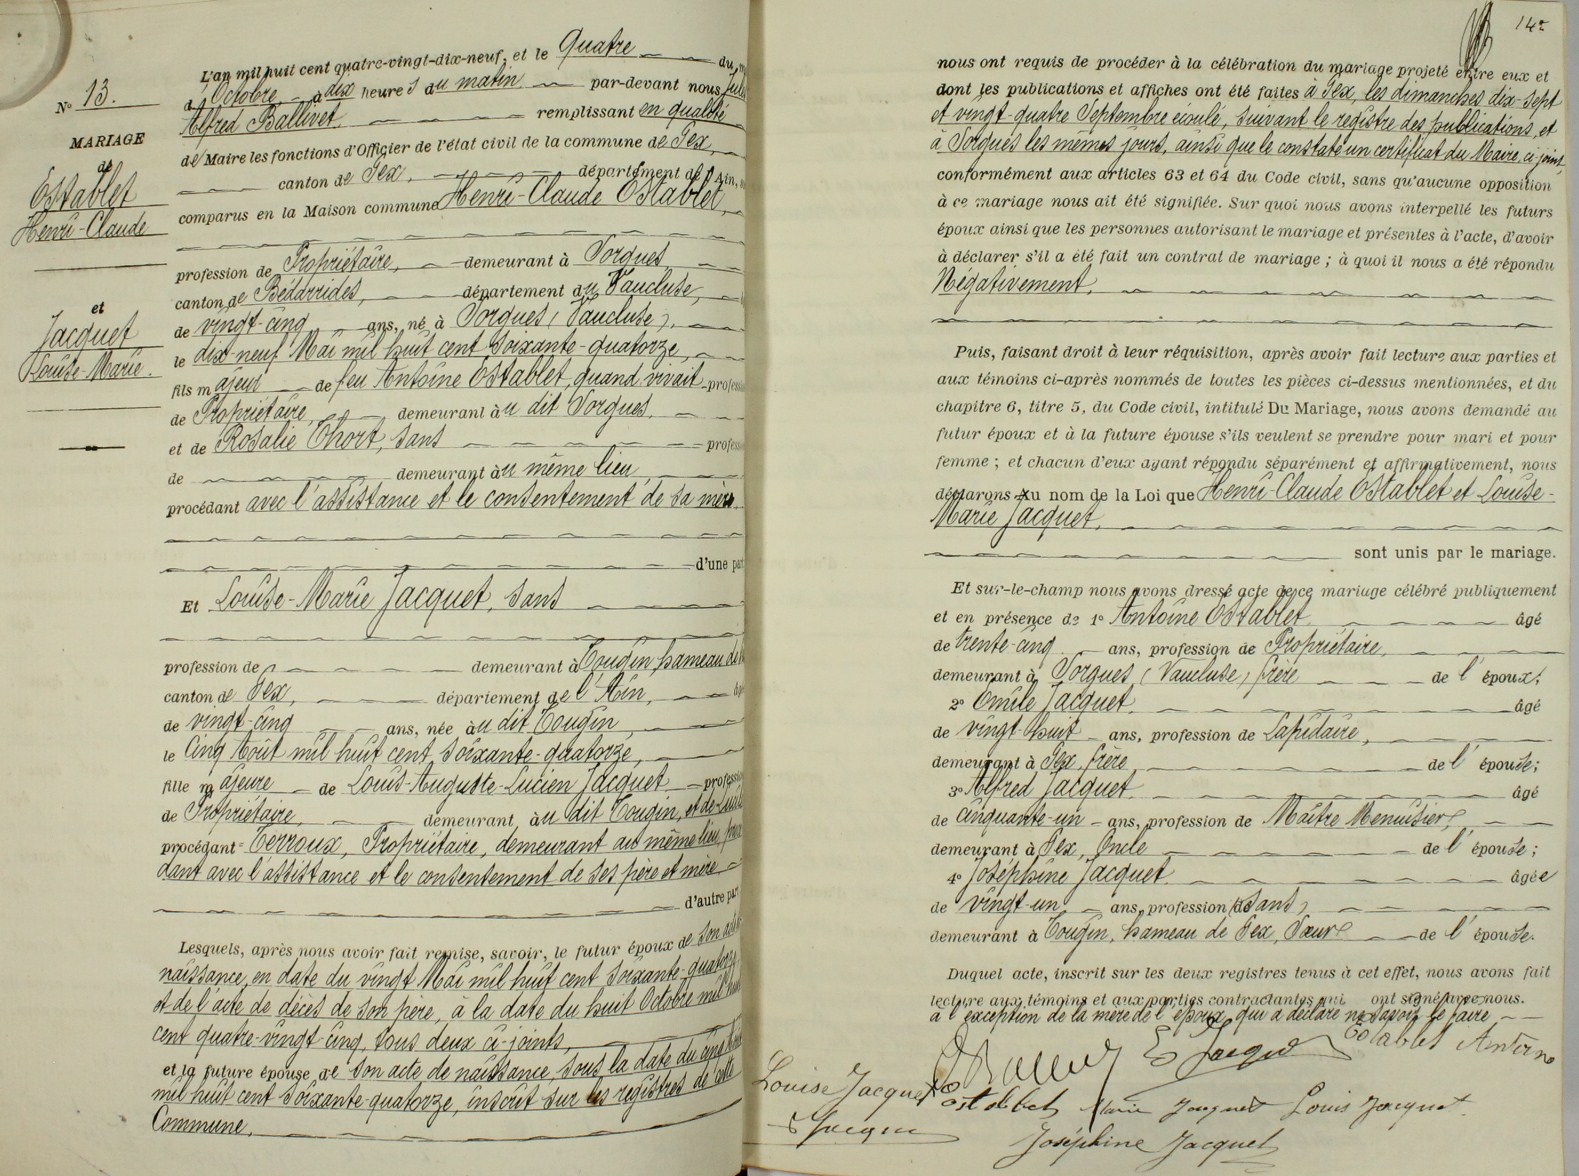 L'an mil huit cent quatre-vingt-dix-neuf, et le Quatre du
d'Octobre, à dix heures du matin par-devant nous
Alfred Ballivet remplissant en qualité
de Maire les fonctions d'Officier de l'état civil de la commune de Gex,
canton de Gex, département de l'Ain,
comparus en la Maison commune Henri-Claude Establet,
N° 13.
MARIAGE
de
Establet
Henri-Claude
et
Jacquet
Louise-Marie.
profession de Propriétaire, demeurant à Sorgues
canton de Bédarrides, département du Vaucluse,
de vingt-cinq ans, né à Sorgues (Vaucluse),
le dix-neuf Mai mil huit cent soixante-quatorze,
fils majeur de feu Antoine Establet, quand vivait
de Propriétaire, demeurant au dit Sorgues,
et de Rosalie Chort, sans
de demeurant au même lieu,
procédant avec l'assistance et le consentement de sa mère.
d'une par
Et Louise-Marie Jacquet, sans
profession de demeurant à Tougin, hameau de
canton de Gex, département de l'Ain,
de vingt-cinq ans, née au dit Tougin,
le Cinq Août mil huit cent soixante-quatorze,
fille majeure de Louis-Auguste-Lucien Jacquet
de Propriétaire, demeurant au dit Tougin, et de
procédant Terroux, Propriétaire, demeurant au même lieu,
dant avec l'assistance et le consentement de ses père et mère
d'autre par
Lesquels, après nous avoir fait remise, savoir, le futur époux de son
naissance, en date du vingt Mai mil huit cent soixante-quatorze
et de l'acte de décès de son père, à la date du huit Octobre mil
cent quatre-vingt cinq, tous deux ci-joints,
et la future épouse de son acte de naissance, sous la date du cinq
mil huit cent soixante-quatorze, inscrit sur les registres de cette
Commune.
142
nous ont requis de procéder à la célébration du mariage projeté entre eux et
dont les publications et affiches ont été faites à Gex, les dimanches dix-sept
et vingt-quatre Septembre écoulé, suivant le registre des publications, et
à Sorgues les mêmes jours, ainsi que le constate un certificat du Maire, ci-joint,
conformément aux articles 63 et 64 du Code civil, sans qu'aucune opposition
à ce mariage nous ait été signifiée. Sur quoi nous avons interpellé les futurs
époux ainsi que les personnes autorisant le mariage et présentes à l'acte, d'avoir
à déclarer s'il a été fait un contrat de mariage ; à quoi il nous a été répondu
Négativement.
Puis, faisant droit à leur réquisition, après avoir fait lecture aux parties et
aux témoins ci-après nommés de toutes les pièces ci-dessus mentionnées, et du
chapitre 6, titre 5, du Code civil, intitulé Du Mariage, nous avons demandé au
futur époux et à la future épouse s'ils veulent se prendre pour mari et pour
femme ; et chacun d'eux ayant répondu séparément et affirmativement, nous
déclarons au nom de la Loi que Henri-Claude Establet et Louise-
Marie Jacquet,
sont unis par le mariage.
Et sur-le-champ nous avons dressé acte de ce mariage célébré publiquement
et en présence de 1° Antoine Establet âgé
de trente-cinq ans, profession de Propriétaire,
demeurant à Sorgues (Vaucluse) frère de l'époux;
2° Emile Jacquet, âgé
de vingt-huit ans, profession de Lapidaire,
demeurant à Gex, frère de l'épouse;
3° Alfred Jacquet âgé
de cinquante-un ans, profession de Maître Menuisier,
demeurant à Gex, Oncle de l'épouse;
4° Joséphine Jacquet âgée
de vingt-un ans, profession de (sans)
demeurant à Tougin, hameau de Gex, Sœur de l'épouse.
Duquel acte, inscrit sur les deux registres tenus à cet effet, nous avons fait
lecture aux témoins et aux parties contractantes qui ont signé avec nous.
à l'exception de la mère de l'époux, qui a déclaré ne savoir le faire
E Jacquet Establet Antoine
Louise Jacquet Establet Marie Jacquet Louis Jacquet
Joséphine Jacquet